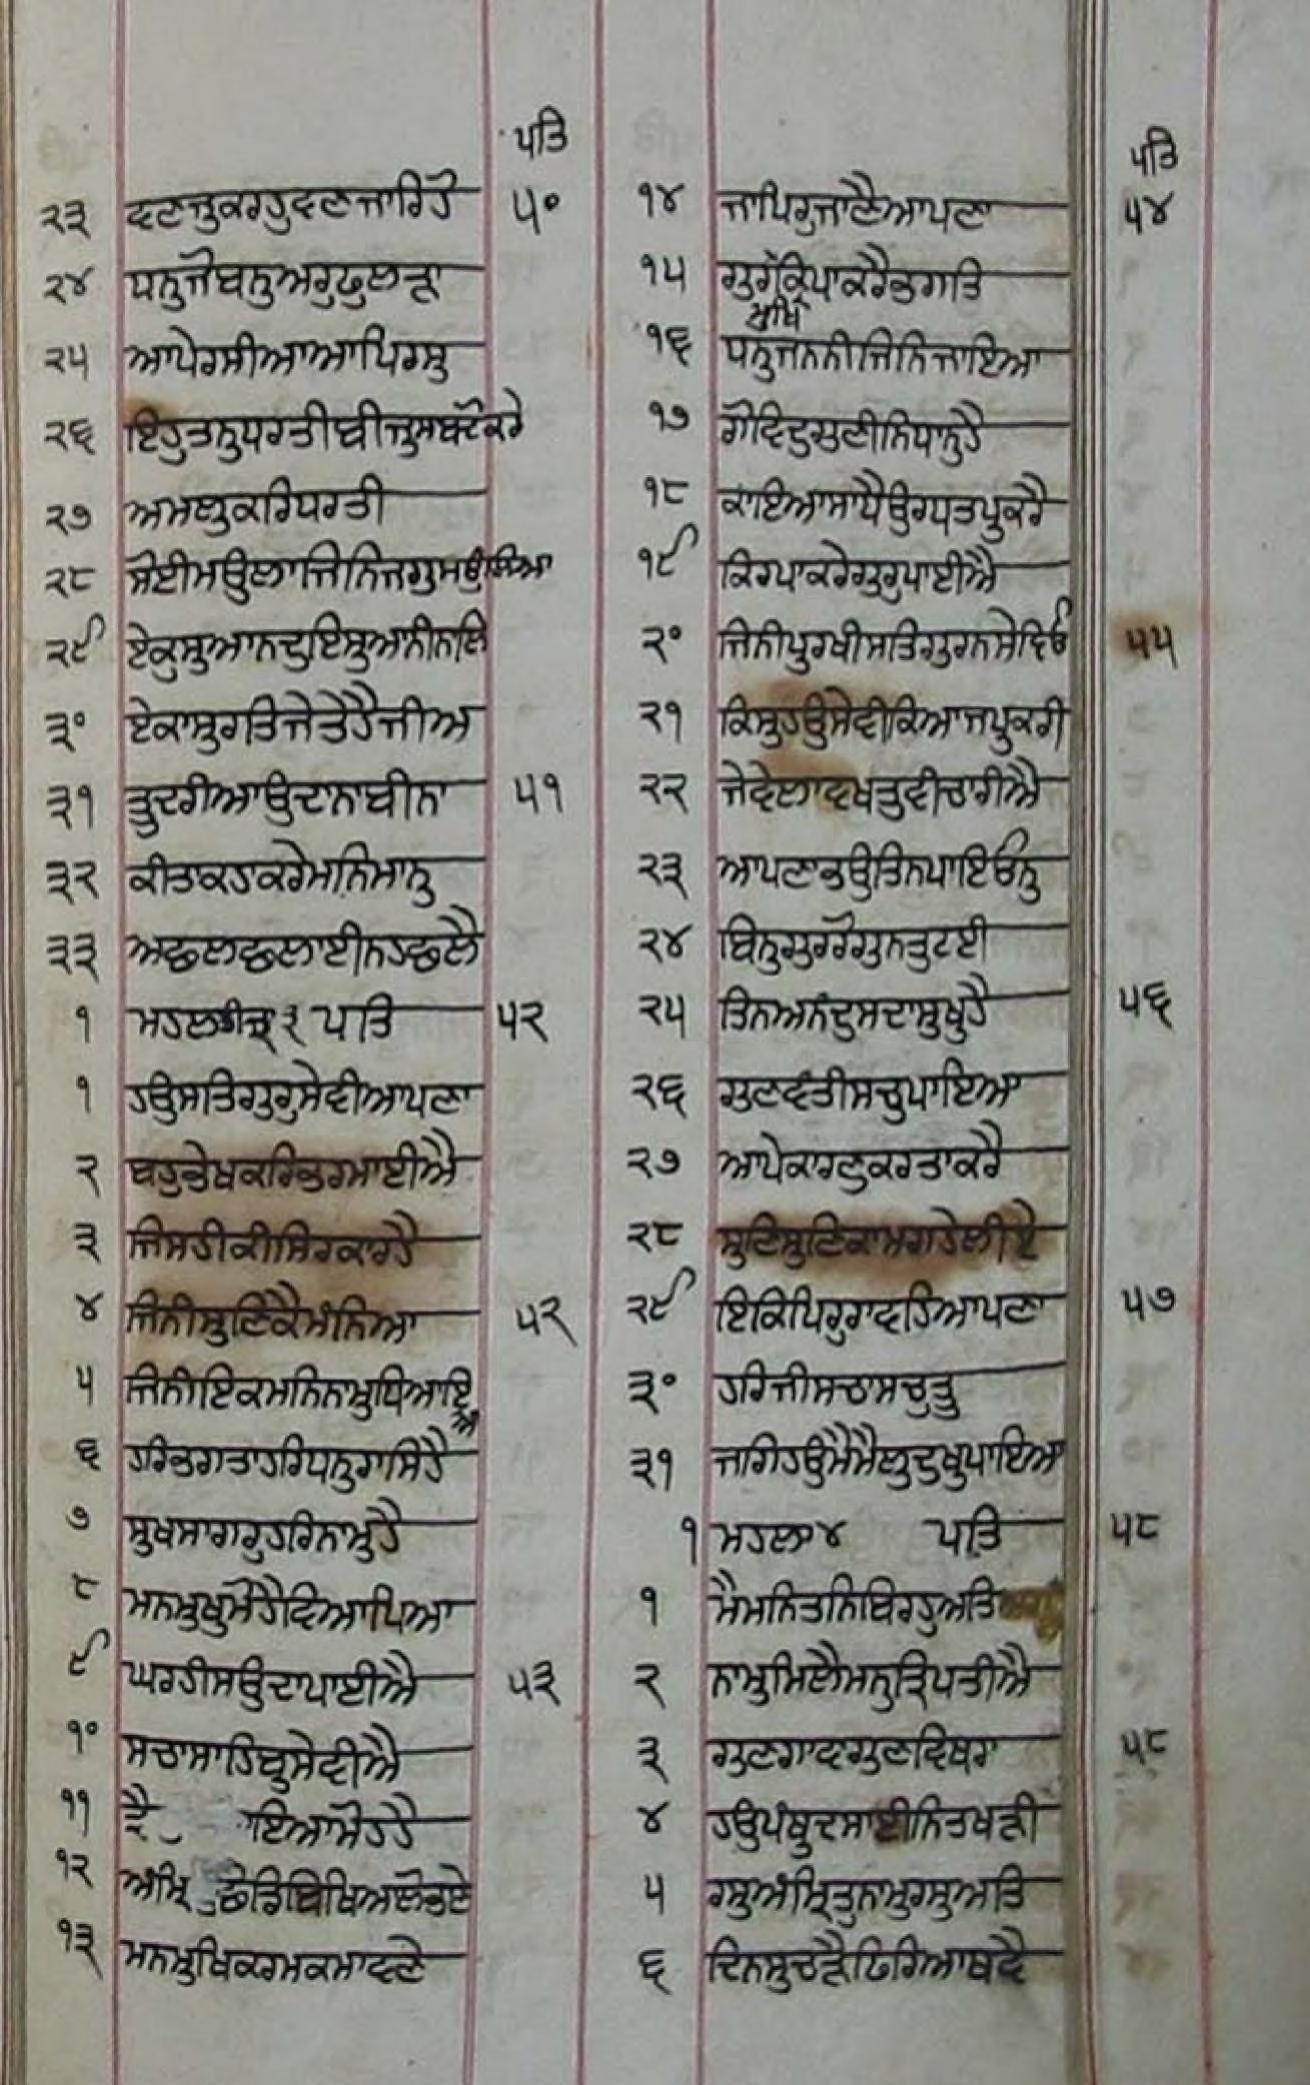 ਪਤਿ
੨੩ ਵਣਜੁਕਰਹੁਵਣਜਾਰਿਹੋ ੫੦
੨੪ ਧਨੁਜੋਬਨੁਅਰੁਫੁਲੜਾ
੨੫ ਆਪੇਰਸੀਆਆਪਿਰਸੁ
੨੬ ਇਹੁਤਨੁਧਰਤੀਬੀਜੁਸਬਦੋਕਰੇ
੨੭ ਅਮਲੁਕਰਿਧਰਤੀ
੨੮ ਸੋਈਮਉਲਾਜਿਨਿਜਗੁਮਉਲਿਆ
੨੯ ਏਕੁਸੁਆਨਦੁਇਸੁਆਨੀਨਾਲਿ
੩੦ ਏਕਾਸੁਰਤਿਜੇਤੇਹੈਜੀਅ
੩੧ ਤੂਦਰੀਆਉਦਾਨਾਬੀਨਾ ੫੧
੩੨ ਕੀਤਾਕਹਾਕਰੇਮਨਿਮਾਨੁ
੩੩ ਅਛਲਛਲਾਈਨਹਛਲੈ
੧ ਮਹਲਾਤੀਜਾ ੩ ਪਤਿ ੫੨
੧ ਹਉਸਤਿਗੁਰੁਸੇਵੀਆਪਣਾ
੨ ਬਹੁਭੇਖਕਰਿਭਰਮਾਈਐ
੩ ਜਿਸਹੀਕੀਸਿਰਕਾਰਹੈ
੪ ਜਿਨੀਸੁਣਿਕੈਮੰਨਿਆ ੫੨
੫ ਜਿਨੀਇਕਮਨਿਨਾਮੁਧਿਆਇਆ
੬ ਹਰਿਭਗਤਾਹਰਿਧਨੁਰਾਸਿਹੈ
੭ ਸੁਖਸਾਗਰੁਹਰਿਨਾਮੁਹੈ
੮ ਮਨਮੁਖੁਮੋਹੈਵਿਆਪਿਆ
੯ ਘਰਹੀਸਉਦਾਪਾਈਐ ੫੩
੧੦ ਸਚਾਸਾਹਿਬੁਸੇਵੀਐ
੧੧ ਤ੍ਰੈ ਇਆਮੋਹਹੈ
੧੨ ਅੰਮ੍ਰਿ ਛੋਡਿਬਿਖਿਆਲੋਭਾਣੇ
੧੩ ਮਨਮੁਖਿਕਰਮਕਮਾਵਣੇ
ਪਤਿ
੧੪ ਜਾਪਿਰੁਜਾਣੈਆਪਣਾ ੫੪
੧੫ ਗੁਰਮੁਖਿਕ੍ਰਿਪਾਕਰੈਭਗਤਿ
੧੬ ਧਨੁਜਨਨੀਜਿਨਿਜਾਇਆ
੧੭ ਗੋਵਿਦੁਗੁਣੀਨਿਧਾਨੁਹੈ
੧੮ ਕਾਂਇਆਸਾਧੈਉਰਧਤਪੁਕਰੈ
੧੯ ਕਿਰਪਾਕਰੇਗੁਰੁਪਾਈਐ
੨੦ ਜਿਨੀਪੁਰਖੀਸਤਿਗੁਰਨਸੇਵਿਓ ੫੫
੨੧ ਕਿਸੁਹਉਸੇਵੀਕਿਆਜਪੁਕਰੀ
੨੨ ਜੇਵੇਲਾਵਖਤੁਵੀਚਾਰੀਐ
੨੩ ਆਪਣਾਭਉਤਿਨਪਾਇਓਨੁ
੨੪ ਬਿਨੁਗੁਰਰੋਗੁਨਤੁਟਈ
੨੫ ਤਿਨਅਨੰਦੁਸਦਾਸੁਖੁਹੈ ੫੬
੨੬ ਗੁਣਵੰਤੀਸਚੁਪਾਇਆ
੨੭ ਆਪੇਕਾਰਣੁਕਰਤਾਕਰੈ
੨੮ ਸੁਣਿਸੁਣਿਕਾਮਗਹੇਲੀਏ
੨੯ ਇਕਿਪਿਰੁਰਾਵਹਿਆਪਣਾ ੫੭
੩੦ ਹਰਿਜੀਸਚਾਸਚੁਤੂ
੩੧ ਜਗਿਹਉਮੈਮੈਲੁਦੁਖੁਪਾਇਆ
੧ ਮਹਲਾ੪ ਪਤਿ ੫੮
੧ ਮੈਮਨਿਤਨਿਬਿਰਹੁਅਤਿ
੨ ਨਾਮੁਮਿਲੈਮਨੁਤ੍ਰਿਪਤੀਐ
੩ ਗੁਣਗਾਵਾਗੁਣਵਿਥਰਾ ੫੮
੪ ਹਉਪੰਥੁਦਸਾਈਨਿਤਖੜੀ
੫ ਰਸੁਅੰਮ੍ਰਿਤੁਨਾਮੁਰਸੁਅਤਿ
੬ ਦਿਨਸੁਚੜੈਫਿਰਿਆਥਵੈ